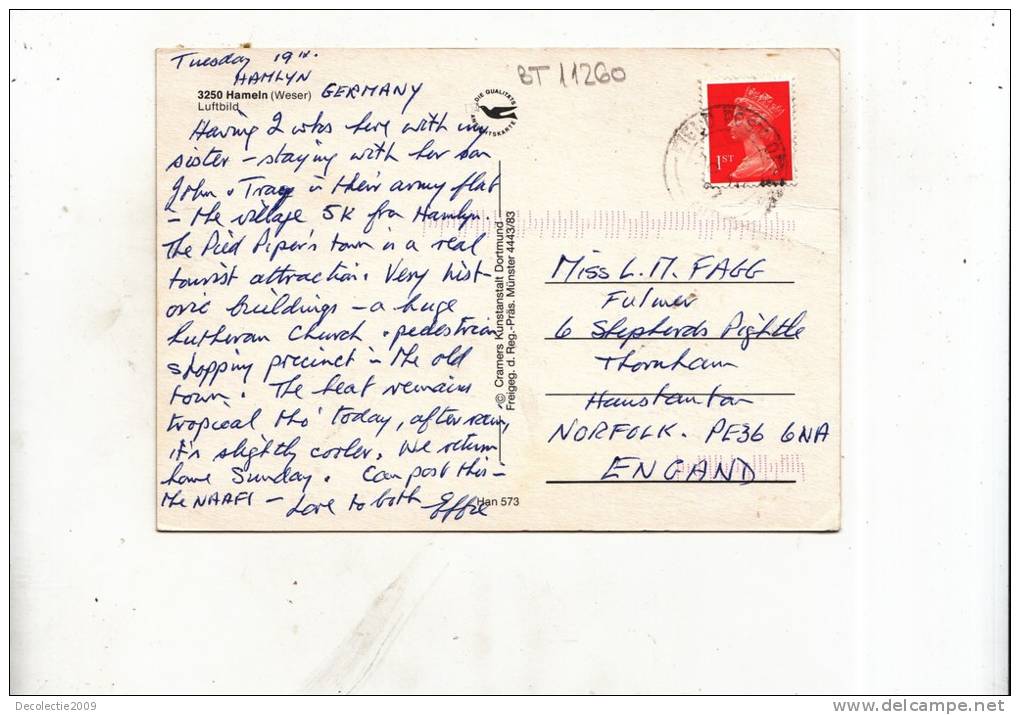 Tuesday 19th.
HAMLYN
GERMANY
3250 Hameln (Weser)
Luftbild
Having 2 wks here with my
sister – staying with her son
John & Tracy in their army flat
– the village 5K from Hamlyn.
The Pied Piper's town is a real
tourist attraction. Very hist-
oric buildings – a huge
Lutheran Church & pedestrian
shopping precinct in the old
town. The heat remains
tropical tho' today, after rain,
it's slightly cooler. We return
home Sunday. Can post this –
the NAAFI – Love to both Effie
BT 11260
DIE QUALITÄTS
ANSICHTSKARTE
© Cramers Kunstanstalt Dortmund
Freigeg. d. Reg.-Präs. Münster 4443/83
Han 573
1ST
FIELD POST OFFICE
Miss L. M. FAGG
Fulmer
6 Shepherds Pightle
Thornham
Hunstanton
NORFOLK. PE36 6NA
ENGAND
Decolectie2009
www.delcampe.net